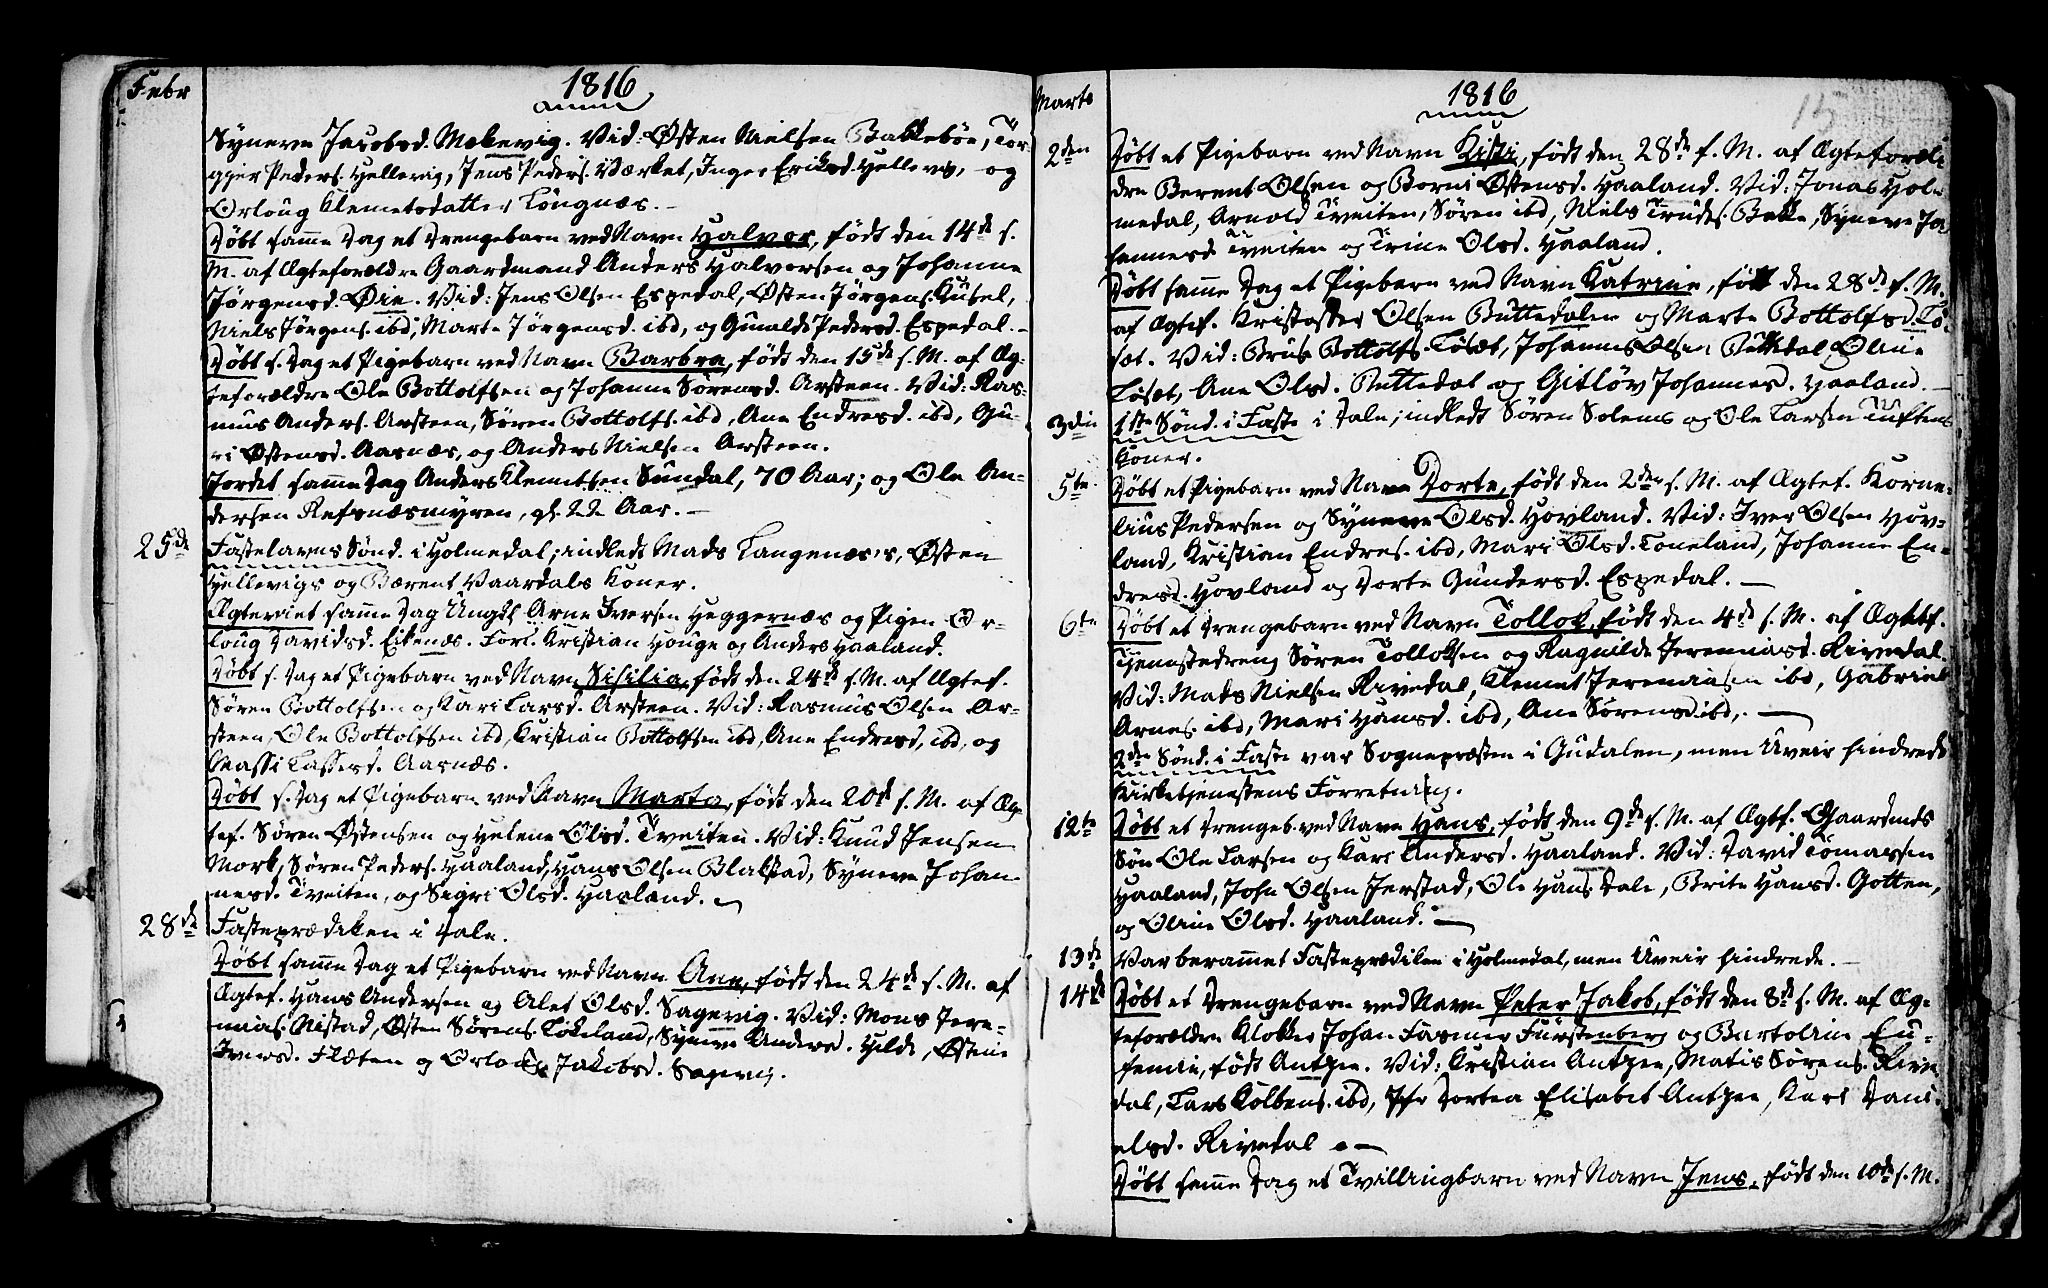 Febr
1816
Synneve Jacobsd. Mækevig. Vid: Østen Nielsen Bakkebøe, Tor-
gier Peders. Hellevig, Jens Peders. Værket, Inger Eriksd. Hellevig, og
Orloug Klemetsdatter Longnæs.
Døbt samme Dag et Drengebarn ved Navn Halvor, født den 14de s.
M. af Ægteforældre Gaardmand Anders Halvorsen og Johanne
Jørgensd. Øie. Vid: Jens Olsen Espedal, Østen Jørgens. Kusel,
Niels Jørgens. ibd, Marte Jørgensd. ibd, og Gunilde Pedersd. Espedal.
Døbt s. Dag et Pigebarn ved Navn Barbra, født den 15de s. M. af Æg-
teforældre Ole Bottolfsen og Johanne Sørensd. Arsteen. Vid: Ras-
mus Anders. Arsteen, Søren Bottolfs. ibd, Ane Endresd. ibd, Gu-
ri Østensd. Aarnæs, og Anders Nielsen Arsteen.
Jordet samme Dag Anders Klemetsen Sundal, 70 Aar; og Ole An-
dersen Refsnæsmyren, gl. 22 Aar.
25de Fastelavns Sønd. i Holmedal; indledt Mads Langenæs's, Østen
Hellevigs og Bærent Vaardals Koner.
Ægteviet samme Dag Ungk. Arne Iversen Heggernæs og Pigen Or-
loug Davidsd. Eikenæs. Forl. Kristian Houge og Anders Haaland.
Døbt s. Dag et Pigebarn ved Navn Sisilia, født den 24de s. M. af Ægtef.
Søren Bottolfsen og Kari Larsd. Arsteen. Vid: Rasmus Olsen Ar-
steen, Ole Bottolfsen ibd, Kristian Bottolfsen ibd, Ane Endresd, ibd, og
Massi Lassesd. Aarnæs.
Døbt s. Dag et Pigebarn ved Navn Marta, født den 20de s. M. af Æg-
tef. Søren Østensen og Helene Olsd. Tveiten. Vid: Knud Jensen
Mork, Søren Peders. Haaland, Hans Olsen Blakstad, Synneve Johan-
nesd. Tveiten, og Sigri Olsd. Haaland.
28de Fasteprædiken i Dale.
Døbt samme Dag et Pigebarn ved Navn Ane, født den 24de s. M. af
Ægtef. Hans Andersen og Alet Olsd. Sagevig. Vid: Mons Jere-
mias. Nistad, Østen Sørens. Lokeland, Synneve Andersd. Hilde, Østine
Iversd. Flæten og Orloug Jakobsd. Sagevig.
Marts
1816
15
2den Døbt et Pigebarn ved Navn Kisti, født den 28de f. M. af Ægteforæl-
dre Berent Olsen og Borni Østensd. Haaland. Vid: Jonas Hol-
medal, Arnold Tveiten, Søren ibd, Niels Truds. Bakke, Synneve Jo-
hannesd Tveiten og Trine Olsd. Haaland.
Døbt samme Dag et Pigebarn ved Navn Katrine, født den 28de f. M.
af Ægtef. Kristoffer Olsen Buttedalen og Marte Bottolfsd. Lo-
sæt. Vid: Bruse Bottolfs. Losæt, Johannes Olsen Buttedal Oline
Losæt, Ane Olsd. Buttedal og Gitløv Johannesd. Haaland.
3die 1ste Sønd. i Faste i Dale; indledt Søren Solems og Ole Larsen Tuftens
Koner.
5te Døbt et Pigebarn ved Navn Dorte, født den 2den s. M. af Ægtef. Korne-
lius Pedersen og Synneve Olsd. Hovland. Vid: Iver Olsen Hov-
land, Kristian Endres. ibd, Mari Olsd. Toneland, Johanne En-
dresd. Hovland og Dorte Gundersd. Espedal.
6te Døbt et Drengebarn ved Navn Tollok, født den 4de s. M. af Ægtef.
Tjenestedreng Søren Tolloksen og Ragnilde Jeremiasd. Rivedal.
Vid: Mads Nielsen Rivedal, Klemet Jeremiasen ibd, Gabriel
Arnes. ibd, Mari Hansd. ibd, Ane Sørensd. ibd,.
2den Sønd. i Faste var Sognepræsten i Gudalen, men Uveir hindrede
Kirketjenestens Forretning.
12te Døbt et Drengeb. ved Navn Hans, født den 9de s. M. af Ægtf. Gaardmds
Søn Ole Larsen og Kari Andersd. Haaland. Vid: David Tomassen
Haaland, John Olsen Jerstad, Ole Hans. Dale, Brite Hansd. Gotten,
og Oline Olsd. Haaland.
13de Var berammet Fasteprædiken i Holmedal, men Uveir hindrede.
14de Døbt et Drengebarn ved Navn Peter Jakob, født den 8de s. M. af Æg-
teforældre Klokker Johan Fasmer Fürstenberg og Bartoline Eu-
femia, født Antzee. Vid: Kristian Antzee, Matis Sørens. Rive-
dal, Lars Kolbens. ibd, Jfr Dortea Elisabet Antzee, Kari Dani-
elsd. Rivedal
Døbt samme Dag et Tvillingbarn ved Navn Jens, født den 10de s. M.